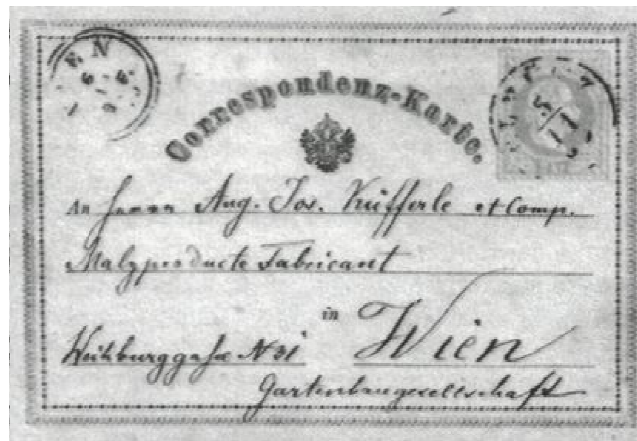 Correspondenz-Karte.
An Herrn Aug. Jos. Küfferle et Comp.
Malzproducte Fabricant
in Wien
Weihburggasse
Gartenbaugesellschaft